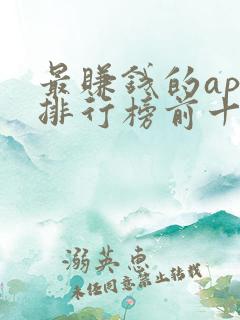 最赚钱的ap
排行榜前十
溺英惠
未经同意禁止转载